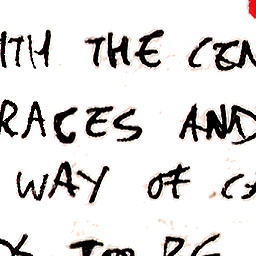 ITH THE CEN
RACES AND
WAY OF CA